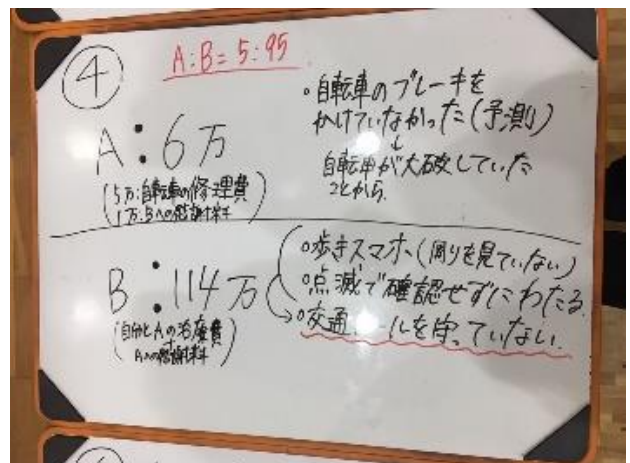 ④
A:B=5:95
A:6万
(5万:自転車の修理費
1万:Bへの慰謝料)
・自転車のブレーキを
かけていなかった(予測)
↓
自転車が大破していた
ことから
B:114万
(自分とAの治療費
Aへの慰謝料)
○歩きスマホ(周りを見ていない)
○点滅で確認せずにわたる
→○交通ルールを守っていない